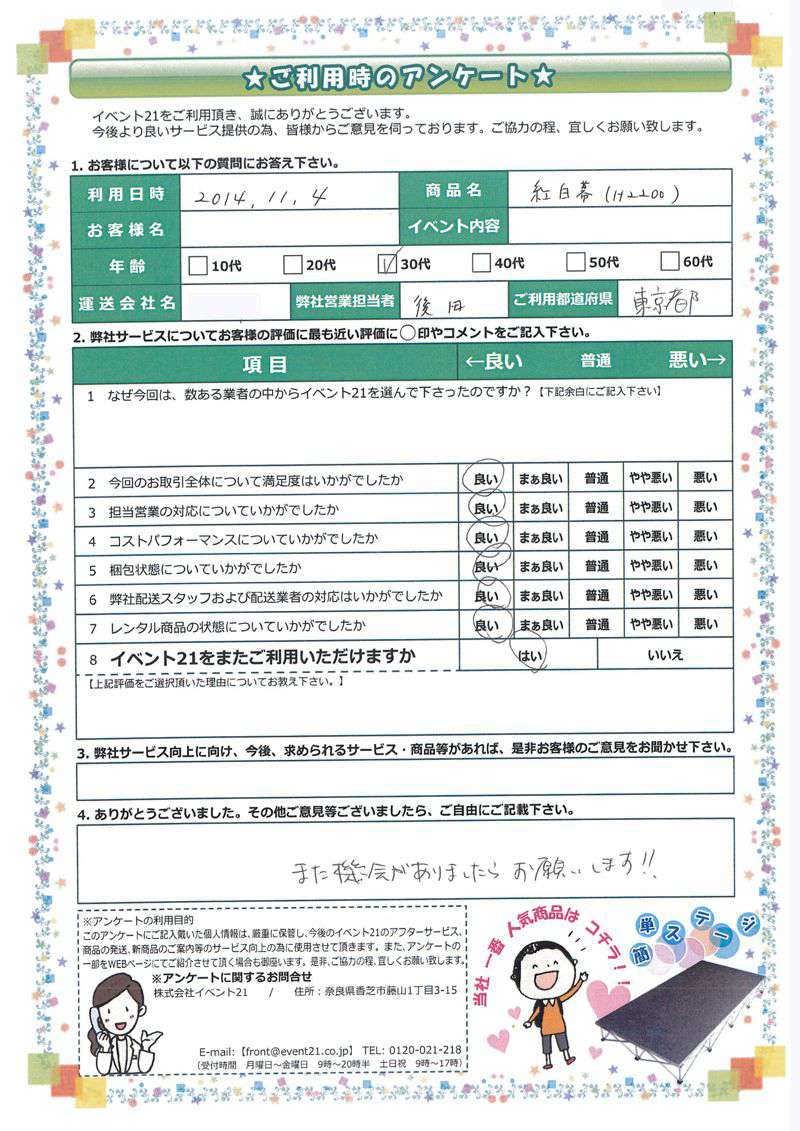 ★ご利用時のアンケート★
イベント21をご利用頂き、誠にありがとうございます。
今後より良いサービス提供の為、皆様からご意見を伺っております。ご協力の程、宜しくお願い致します。
1. お客様について以下の質問にお答え下さい。
利用日時 2014, 11, 4 商品名 紅白幕(H2200)
お客様名 イベント内容
年齢 10代 20代 30代 40代 50代 60代
運送会社名 弊社営業担当者 後 ご利用都道府県 東京都
2. 弊社サービスについてお客様の評価に最も近い評価に○印やコメントをご記入下さい。
項目 ←良い 普通 悪い→
1 なぜ今回は、数ある業者の中からイベント21を選んで下さったのですか？【下記余白にご記入下さい】
2 今回のお取引全体について満足度はいかがでしたか 良い まぁ良い 普通 やや悪い 悪い
3 担当営業の対応についていかがでしたか 良い まぁ良い 普通 やや悪い 悪い
4 コストパフォーマンスについていかがでしたか 良い まぁ良い 普通 やや悪い 悪い
5 梱包状態についていかがでしたか 良い まぁ良い 普通 やや悪い 悪い
6 弊社配送スタッフおよび配送業者の対応はいかがでしたか 良い まぁ良い 普通 やや悪い 悪い
7 レンタル商品の状態についていかがでしたか 良い まぁ良い 普通 やや悪い 悪い
8 イベント21をまたご利用いただけますか はい いいえ
【上記評価をご選択頂いた理由についてお教え下さい。】
3. 弊社サービス向上に向け、今後、求められるサービス・商品等があれば、是非お客様のご意見をお聞かせ下さい。
4. ありがとうございました。その他ご意見等ございましたら、ご自由にご記載下さい。
また機会がありましたら お願いします!!
※アンケートの利用目的
このアンケートにご記入戴いた個人情報は、厳重に保管し、今後のイベント21のアフターサービス、
商品の発送、新商品のご案内等のサービス向上の為に使用させて頂きます。また、アンケートの
一部をWEBページにてご紹介させて頂く場合も御座います。是非、ご協力の程、宜しくお願い致します。
※アンケートに関するお問合せ
株式会社イベント21 / 住所：奈良県香芝市藤山1丁目3-15
E-mail:【front@event21.co.jp】 TEL: 0120-021-218
（受付時間 月曜日～金曜日 9時～20時半 土日祝 9時～17時）
当社一番人気商品はコチラ！！
簡単ステージ